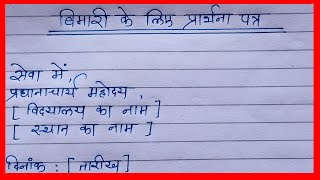 बिमारी के लिए प्रार्थना पत्र
सेवा में,
प्रधानाचार्य महोदय,
[ विद्यालय का नाम ]
[ स्थान का नाम ]
दिनांक : [ तारीख ]